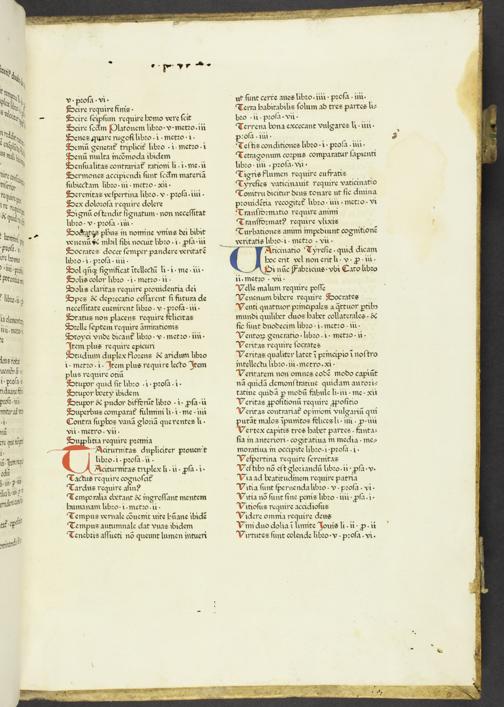 v · prosa · vi ·
Scire require finis ·
Scire seipsum require homo vere scit
Scire scdm Platonem libro · v · metro · iii
Senes quare rugosi libro · i · metro · i
Semina generat triplicit libro · i · metro · i
Senum multa incomoda ibidem
Sensualitas contrariat rationi li · i · me · ii
Sermones accipiendi sunt scdm materia
subiectam libro · iii · metro · xii ·
Serenitas vespertina libro · v · prosa · iiii
Sex dolorosa require dolere
Signum ostendit signatum · non necessitat
libro · v · prosa · iiii ·
Socrates plus in nomine vnius dei bibit
venenum & nihil sibi nocuit libro · i · prosa · iii
Socrates docet semper pandere veritate
libro · i · prosa · iiii
Sol significat intellectum li · i · me · iii ·
Solis color libro · i · metro · ii ·
Solis claritas require prouidentia dei
Spes & deprecatio cessarent si futura de
necessitate euenirent libro · v · prosa · iii
Status non placens require felicitas
Stelle septem require admiratiomis
Stoyci vnde dicantur libro · v · metro · iiii
Item plus require epicuri
Studium duplex florens & aridum libro
· i · metro · i · Item plus require lecto Item
plus require otium
Stupor quid sit libro · i · prosa · i ·
Stupor ibidem
Stupor & pudor differunt libro · i · psa · ii
Superbus comparat fulmini li · i · me · iiii
Contra suplos vana gloria querentes li ·
vii · metro · vii ·
Supplicia require premia
Taciturnitas dupliciter prouenit
libro · i · prosa · ii ·
Taciturnitas triplex li · ii · psa · i ·
Tactus require cognoscat
Tardus require asini
Temporalia extant & ingressant mentem
humanam libro · i · metro · ii ·
Tempus vernale ibidem
Tempus autumnale dat vuas ibidem
Tenebris assueti non queunt lumen intueri
ut sunt certe aues libro · iiii · prosa · iiii ·
Terra habitabilis solum ad tres partes li-
bro · ii · prosa · vii ·
Terrena bona excecant vulgares li · iiii ·
prosa · iiii ·
Testis conditiones libro · i · prosa · iiii ·
Tetragonum corpus comparatur sapienti
libro · iii · prosa · vi ·
Tigris flumen require eufratis
Tyresies vaticinauit require vaticinatio
Tonitru dicitur deus tenare ut sic diuina
prouidetia recognoscit libro · iiii · metro · vi
Transformatio require animi
Transformatio require vlixis
Turbationes animi impediunt cognitione
veritatis libro · i · metro · vii ·
Vaticinatio Tyresie · quid dicam
hoc erit vel non erit li · v · p · iii ·
Vbi nunc Fabricius · vbi Cato libro
ii · metro · vii ·
Velle malum require posse
Venenum bibere require Socrates
Venti quattuor principales a quatuor ptibus
mundi quilibet duos habet collaterales · &
sic sunt duodecim libro · i · metro · iii ·
Ventorum generatio libro · i · metro · ii ·
Veritas require socrates
Veritas qualiter latet in principio in nostro
intellectu libro · iii · metro · xi ·
Veritatem non omnes eodem modo capiunt
nam quidam demonstratiue quidam autori-
tatiue quidam p modum fabule li · ii · me · xii
Veritas propositionum require propositio
Veritas contrariat opinioni vulgarium qui
putant malos impunitos felices li · iiii · p · iiii
Vertex capitis tres habet partes · fanta-
sia in anteriori · cogitatiua in media · me-
moratiua in occipite libro · i · prosa · i ·
Vespertina require serenitas
Vestibus non est gloriandum libro · ii · psa · v ·
Via ad beatitudinem require patria
Vitia sunt spernenda libro · v · prosa · vi ·
Vitia non sunt sine penis libro · iiii · psa · i ·
Vitiosus require accidiosus
Videre omnia require deus
Vini duo dolia in limite Iouis li · ii · p · ii
Virtutes sunt colende libro · v · prosa · vi ·